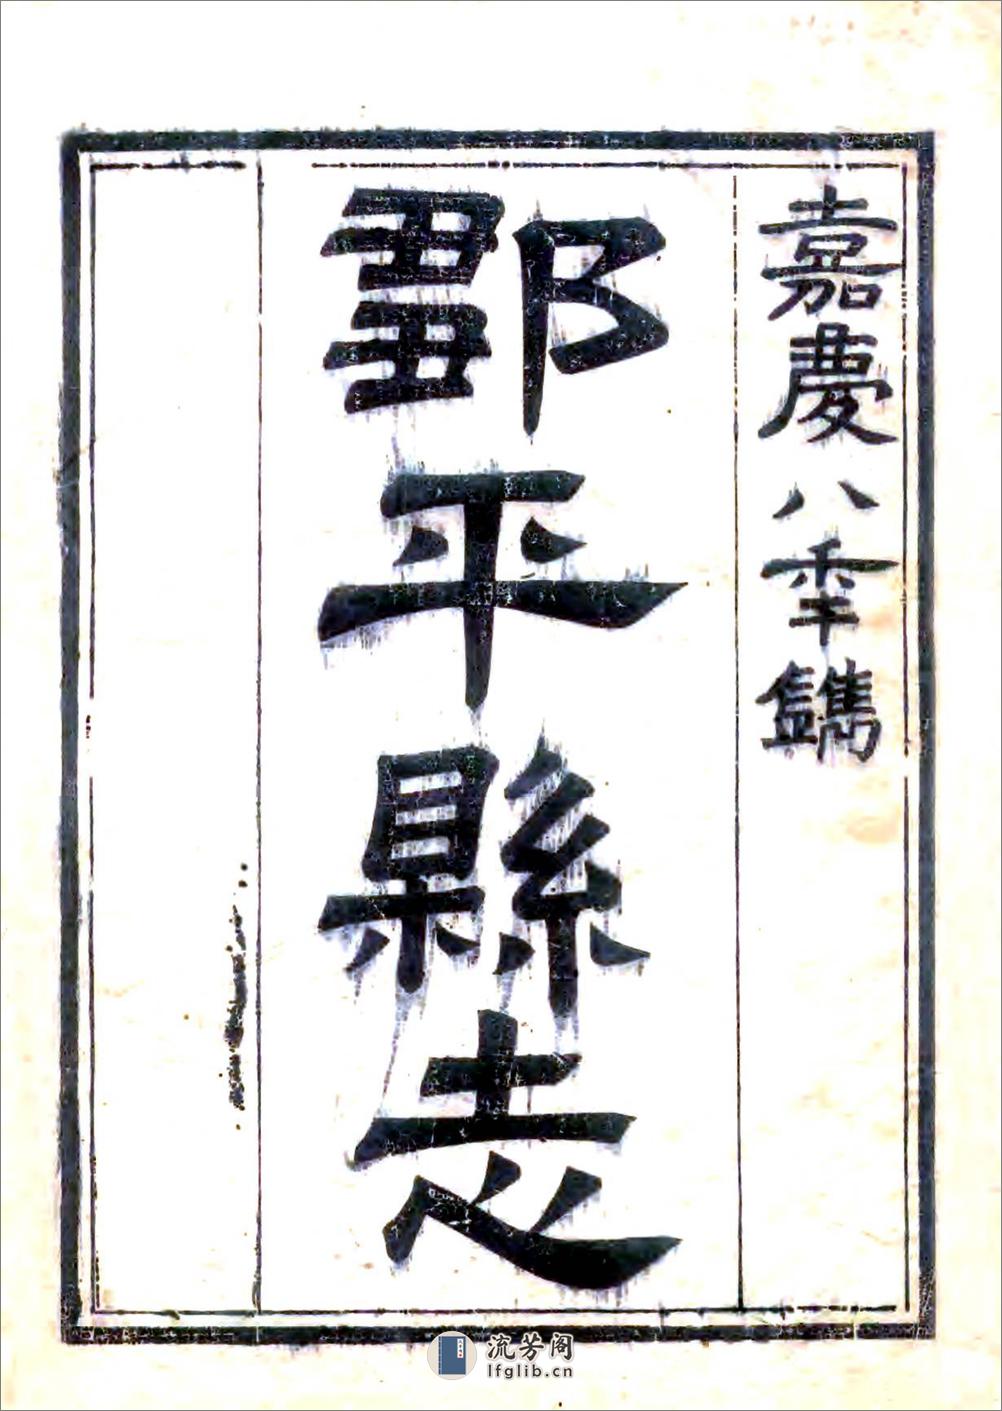 嘉慶八年鐫
鄒平縣志
流芳阁
lfglib.cn